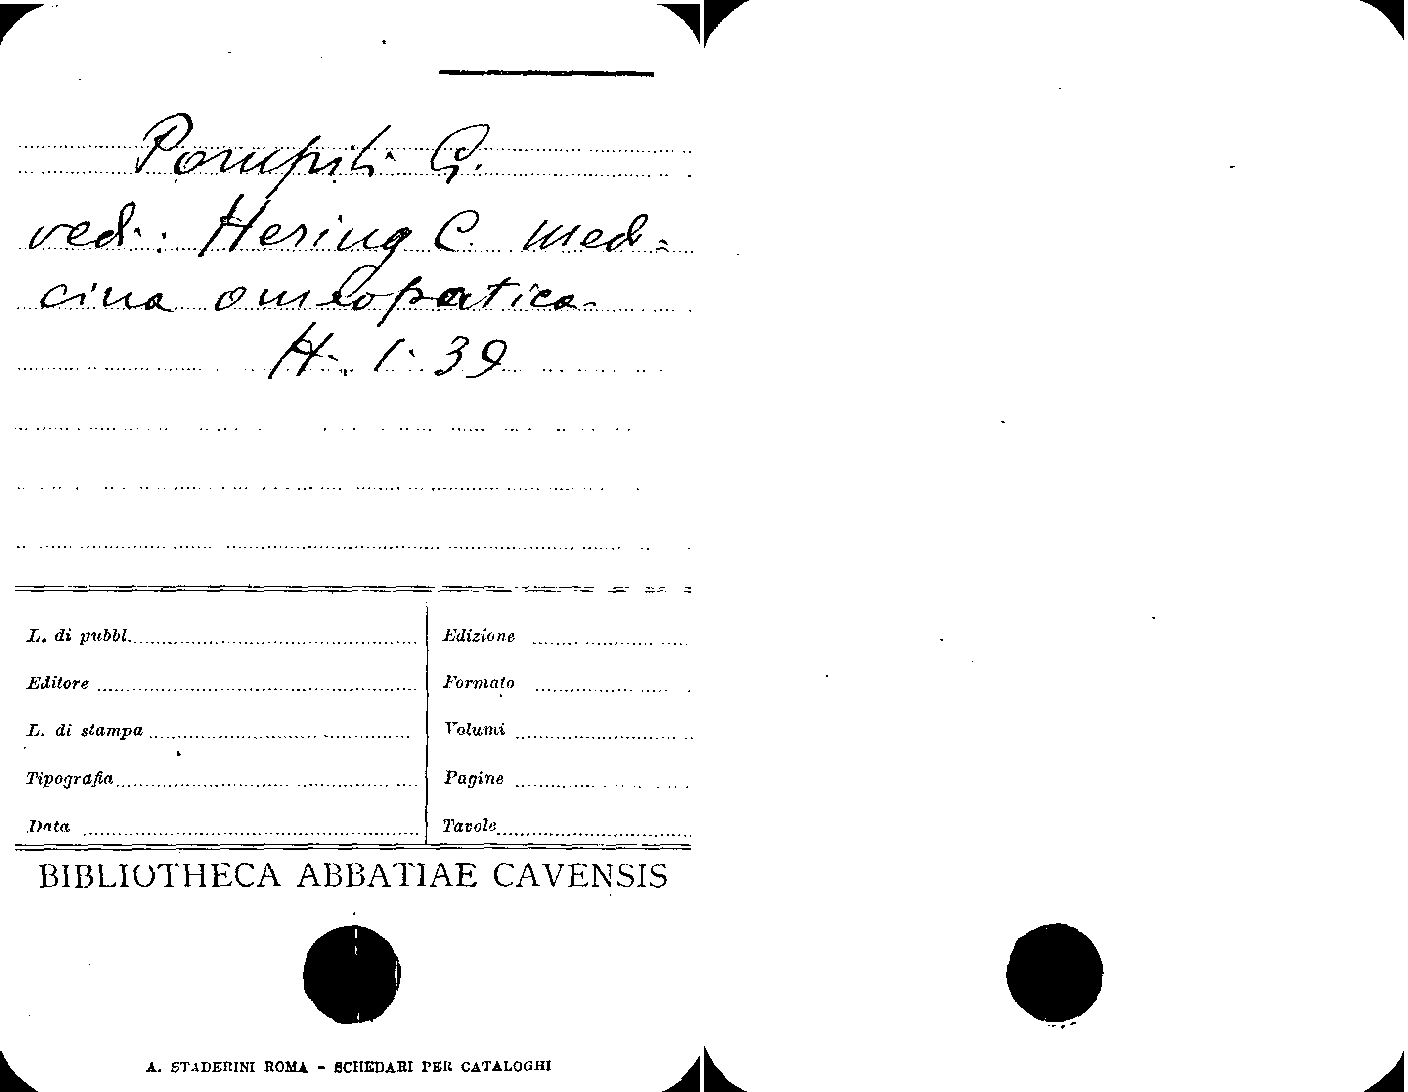 Pompili G.
vedi: Hering C. medi=
cina omeopatica
H. 1. 39
L. di pubbl.
Edizione
Editore
Formato
L. di stampa
Volumi
Tipografia
Pagine
Data
Tavole
BIBLIOTHECA ABBATIAE CAVENSIS
A. STADERINI ROMA - SCHEDARI PER CATALOGHI